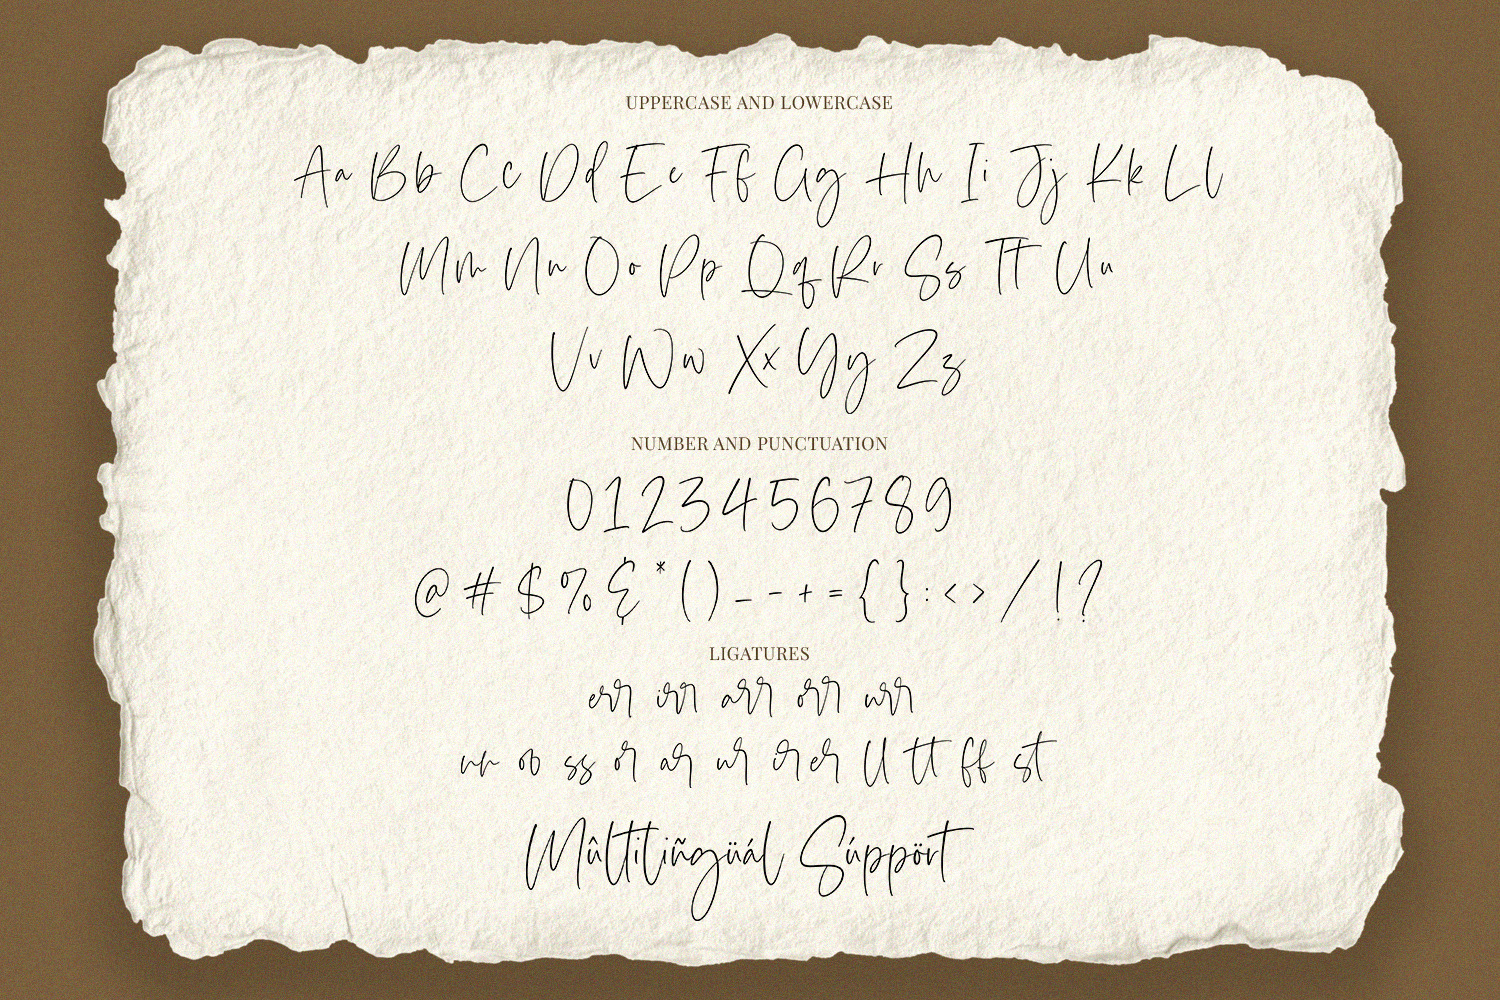 UPPERCASE AND LOWERCASE
Aa Bb Cc Dd Ee Ff Gg Hh Ii Jj Kk Ll
Mm Nn Oo Pp Qq Rr Ss Tt Uu
Vv Ww Xx Yy Zz
NUMBER AND PUNCTUATION
0123456789
@ # $ % & * ( ) _ - + = { } : < > / ! ?
LIGATURES
err irr arr orr urr
rr oo ss or ar ur ir er ll tt ff st
Mûltiliñgüál Súppört